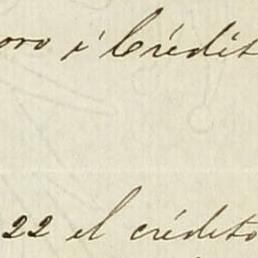 oro i Crédit
22 el crédito